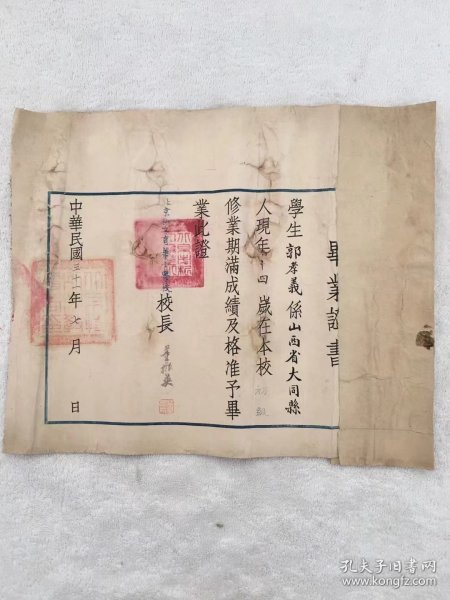 畢業證書
學生郭孝義係山西省大同縣
人現年十四歲在本校初級
修業期滿成績及格准予畢
業此證
校長
中華民國三十一年七月 日
孔夫子旧书网
www.kongfz.com